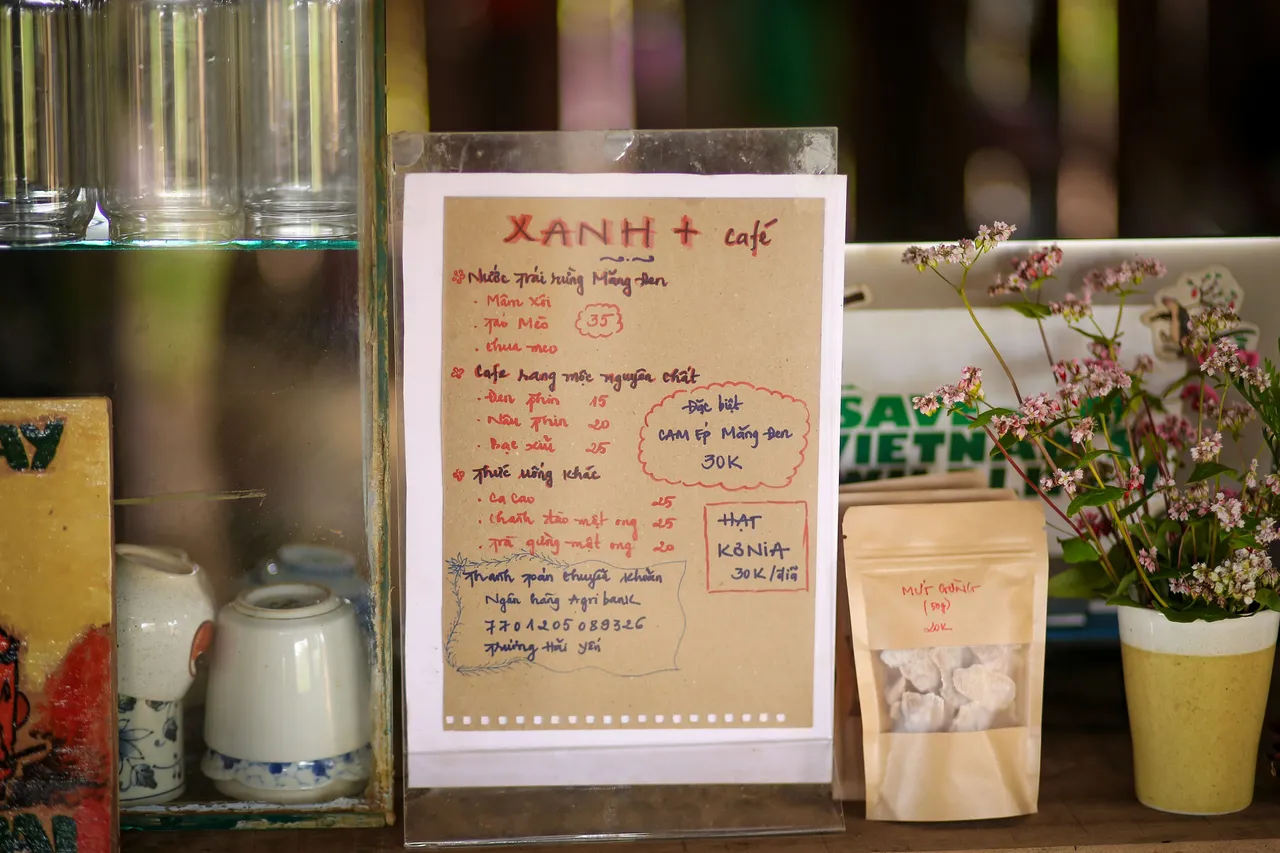 XANH + café
Nước Trái rừng Măng Đen
. Mâm Xôi
. Táo Mèo 35
. chua meo
Cafe rang mộc nguyên chất
. Đen phin 15
. Nâu phin 20
. Bạc xỉu 25
Đặc biệt
CAM ÉP Măng Đen
30K
Thức uống khác
. Ca Cao 25
. Chanh đào mật ong 25
. Trà gừng mật ong 20
HẠT
KƠNIA
30K/đĩa
Thanh toán chuyển khoản
Ngân hàng Agribank
7701205089326
Trương Hải Yến
MỨT GỪNG
(50g)
20K
SAVE
VIETNA